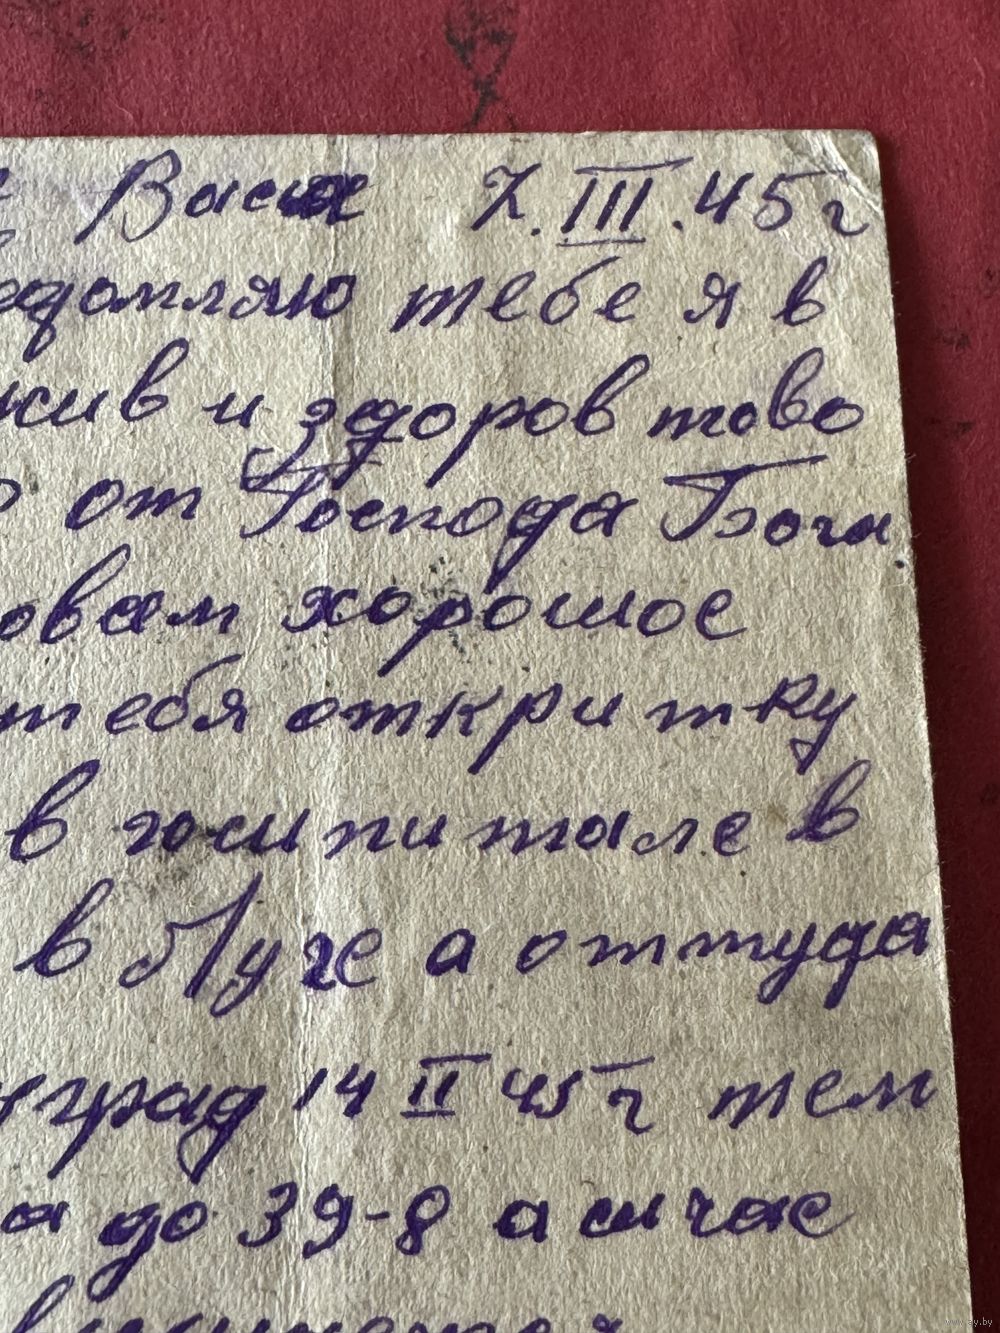 Вася 7.III.45 г
едомляю тебе я в
жив и здоров тово
от Господа Бога
овам хорошое
тебя откритку
в гошпитале в
в б/уге а оттуда
град 14 II 45 г тем
а до 39-8 а шчас
www.ay.by